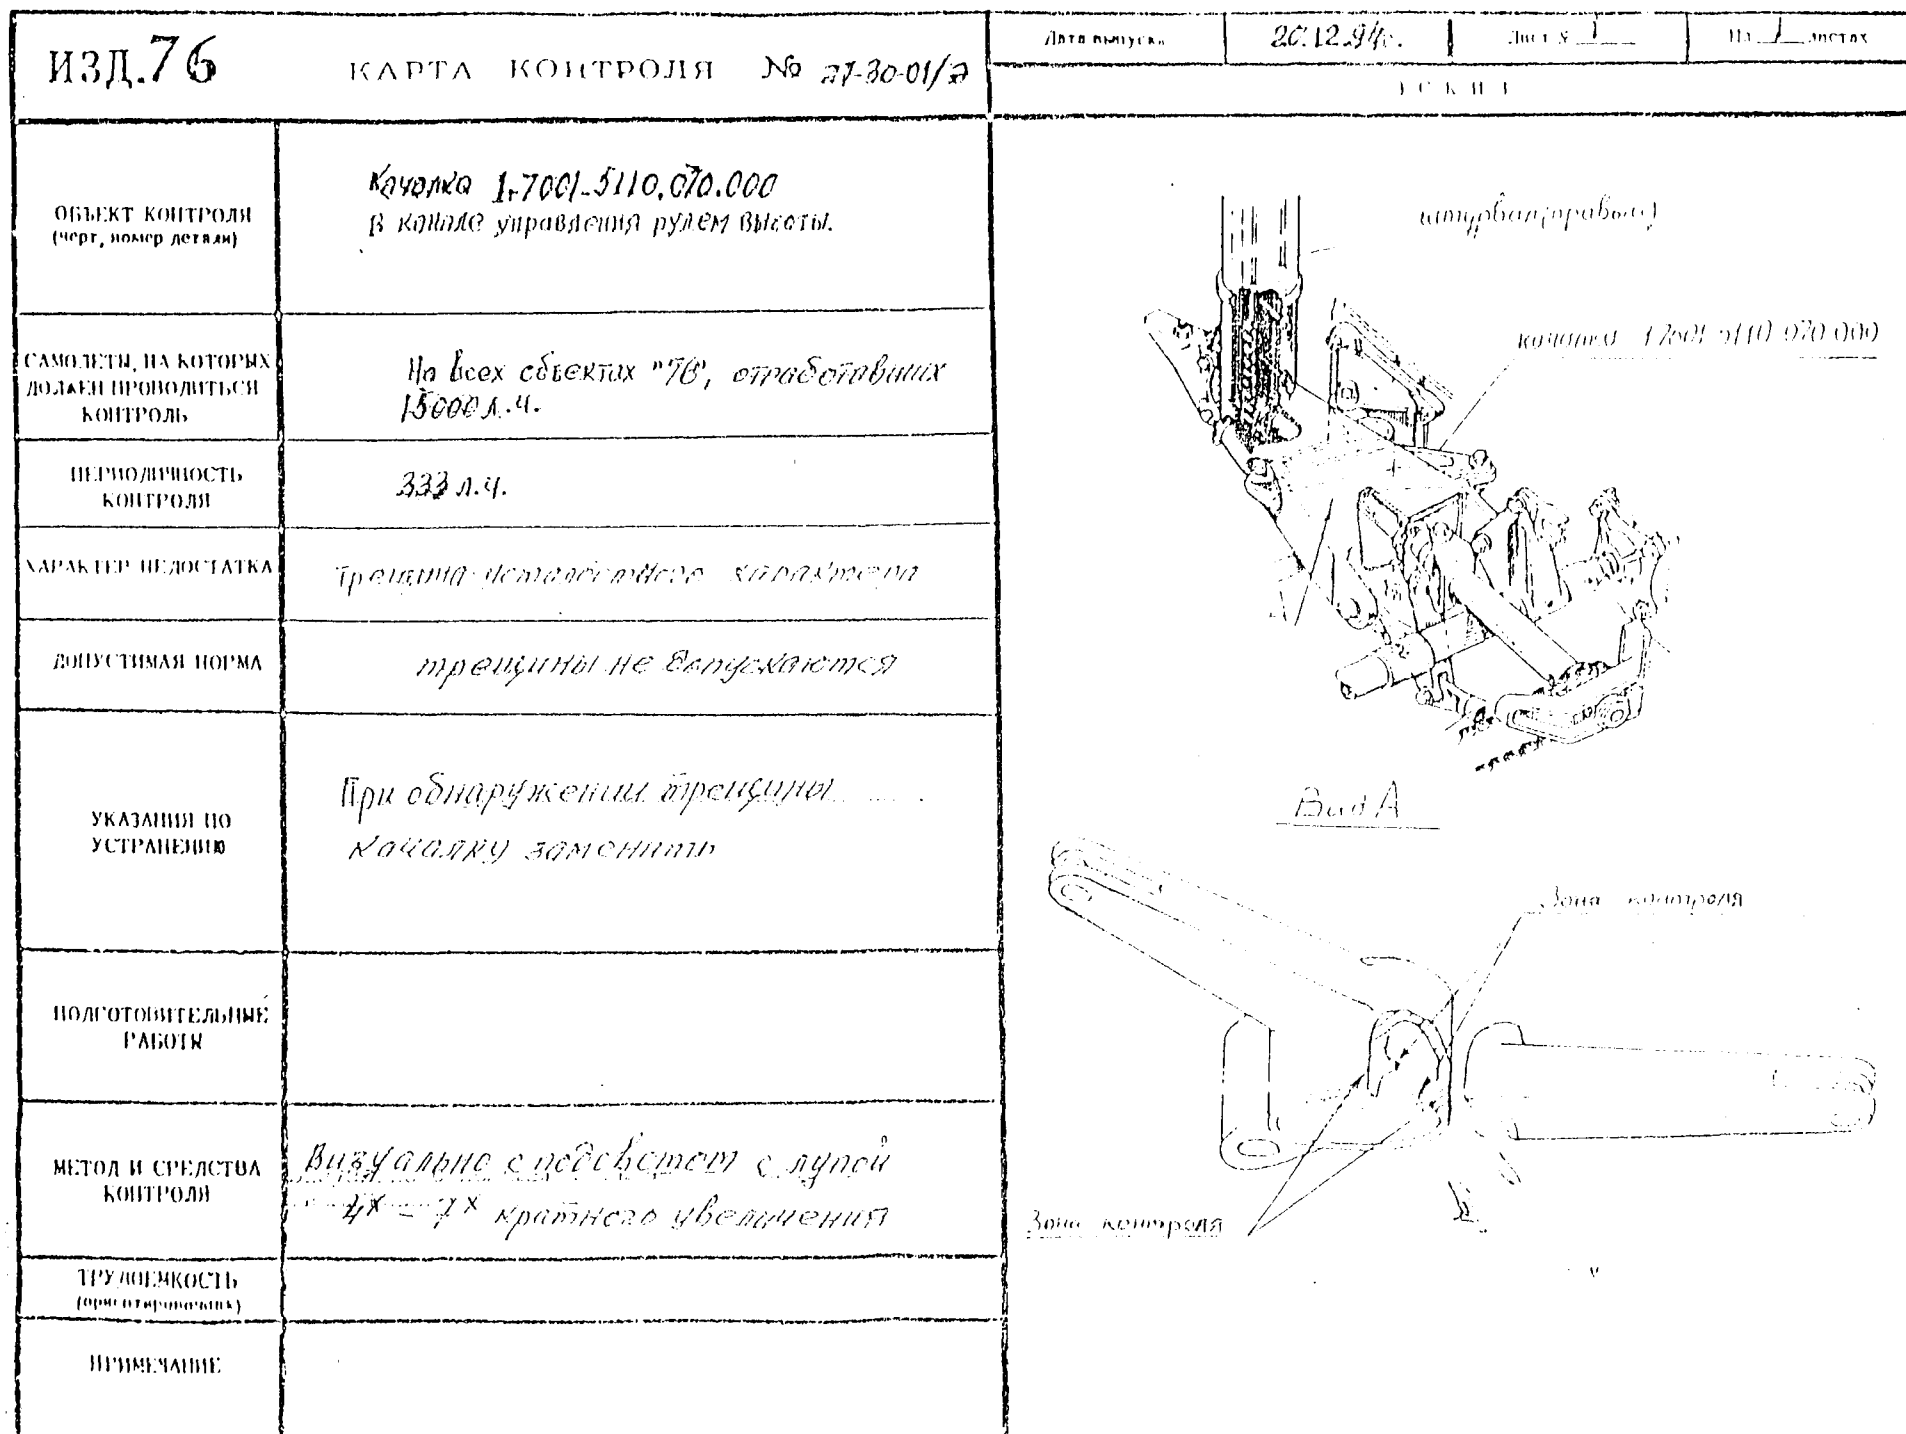 ИЗД.76
КАРТА КОНТРОЛЯ № 27-30-01/
Дата выпуска
20.12.94г.
Лист № 1
На 1 листах
ЭСКИЗ
ОБЪЕКТ КОНТРОЛЯ
(черт, номер детали)
Качалка 1.7001.5110.070.000
в канале управления рулем высоты.
САМОЛЕТЫ, НА КОТОРЫХ
ДОЛЖЕН ПРОВОДИТЬСЯ
КОНТРОЛЬ
На всех объектах "76", отработавших
15000 л.ч.
ПЕРИОДИЧНОСТЬ
КОНТРОЛЯ
333 л.ч.
ХАРАКТЕР НЕДОСТАТКА
Трещина усталостного характера
ДОПУСТИМАЯ НОРМА
трещины не допускаются
УКАЗАНИЯ ПО
УСТРАНЕНИЮ
При обнаружении трещины
качалку заменить
ПОДГОТОВИТЕЛЬНЫЕ
РАБОТЫ
МЕТОД И СРЕДСТВА
КОНТРОЛЯ
Визуально с подсветом с лупой
4х – 7х кратного увеличения
ТРУДОЕМКОСТЬ
(ориентировочная)
ПРИМЕЧАНИЕ
штурвал(правый)
качалка
Вид А
Зона контроля
Зона контроля